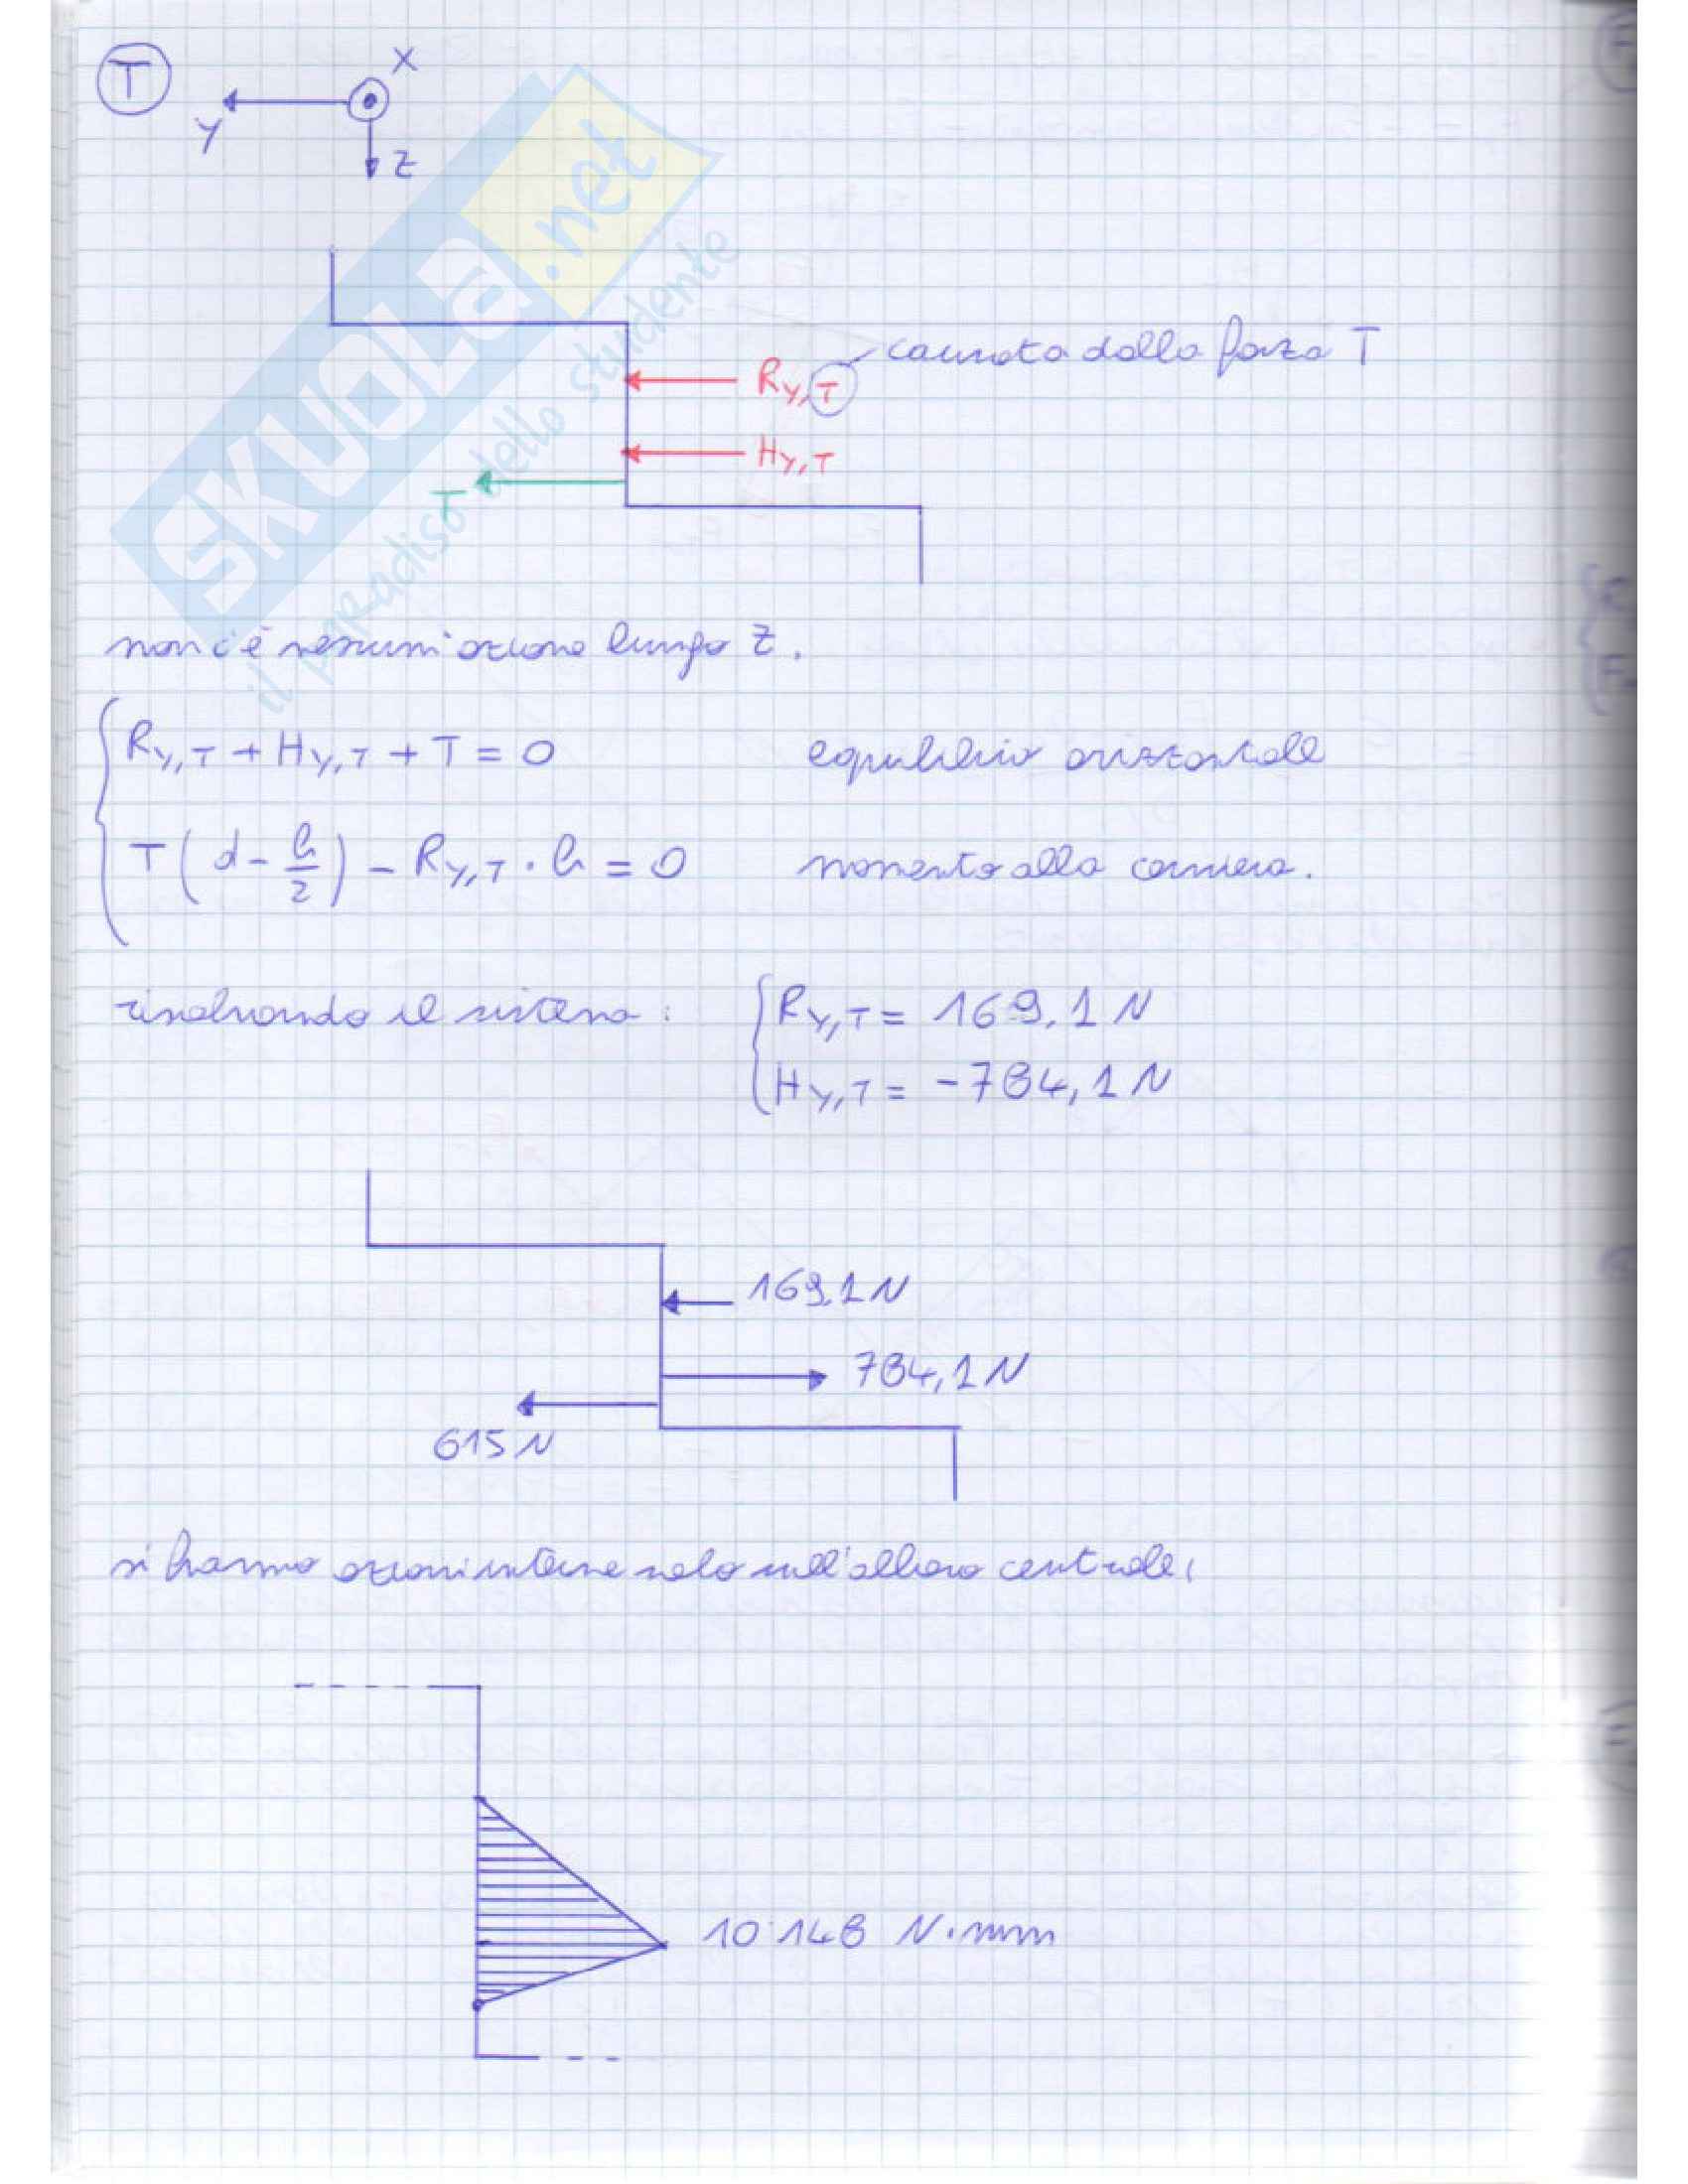 T
X
Y
Z
SKUOLA.net
il paradiso dello studente
causata dalla forza T
R_Y,T
H_Y,T
T
non c'è nessun azione lungo Z.
R_Y,T + H_Y,T + T = 0 equilibrio orizzontale
T(d - h/2) - R_Y,T · h = 0 momento alla cerniera.
risolvendo il sistema: R_Y,T = 169,1 N
H_Y,T = -784,1 N
169,1 N
784,1 N
615 N
si hanno azioni interne solo sull'albero centrale,
10'148 N·mm